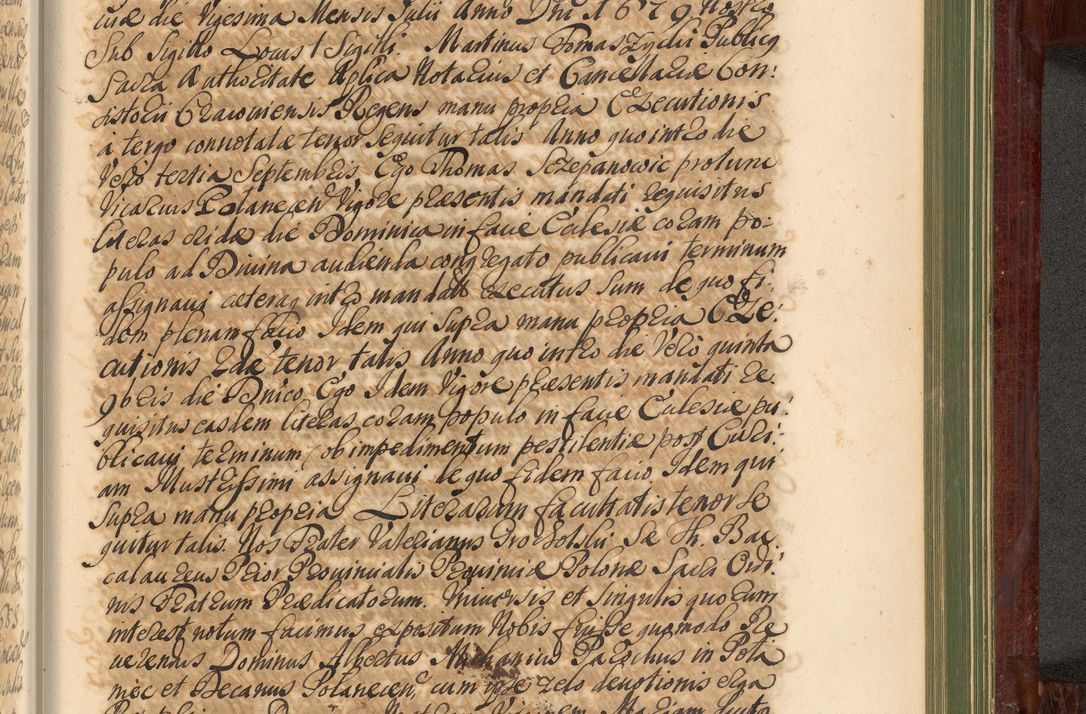 die Vigesima Mensis Julii Anno Dni 1679 Nostro
Sub Sigillo Locus † Sigilli Martinus Tomaszydii Publicq
Sacra Authoritate Aplica Notarius et Cancellariæ Con:
sistorii Cracoviensis Regens manu propria Executionis
à tergo connotatæ tenor Sequitur talis Anno quo intro die
Vero tertia Septembris Ego Thomas Sczepanowic protunc
Vicarius Polanecen Vigore præsentis mandati requisitus
literas cridæ die Dominica in facie Ecclesiæ coram po-
pulo ad Divina audienda congregato publicavi terminum
assignavi cæteraq intro mandati Executus Sum de quo fi:
dem plenam facio Idem qui Supra manu propria Exe:
cutionis 2dæ tenor talis Anno quo intro die Vero quinta
9bris die Dnico Ego Idem Vigore præsentis mandati re:
quisitus easdem literas coram populo in facie Ecclesiæ pu:
blicavi terminum ob impedimentum pestilentiæ post Curi:
am Illustrissimi assignavi de quo fidem facio Idem qui
Supra manu propria Literarum facultatis tenor Se
quitur talis. Nos Frater Valerianus Grocholski Sæ Th. Bac
calaureus Prior Provincialis Provinciæ Polonæ Sacri Ordi:
nis Fratrum Prædicatorum. Universis et Singulis quorum
interest notum facimus, expositum Nobis fuisse quomodo Re
verendus Dominus Albertus Parochus in Pola
niec et Decanus Polanecen cum ipse zelo devotionis erga